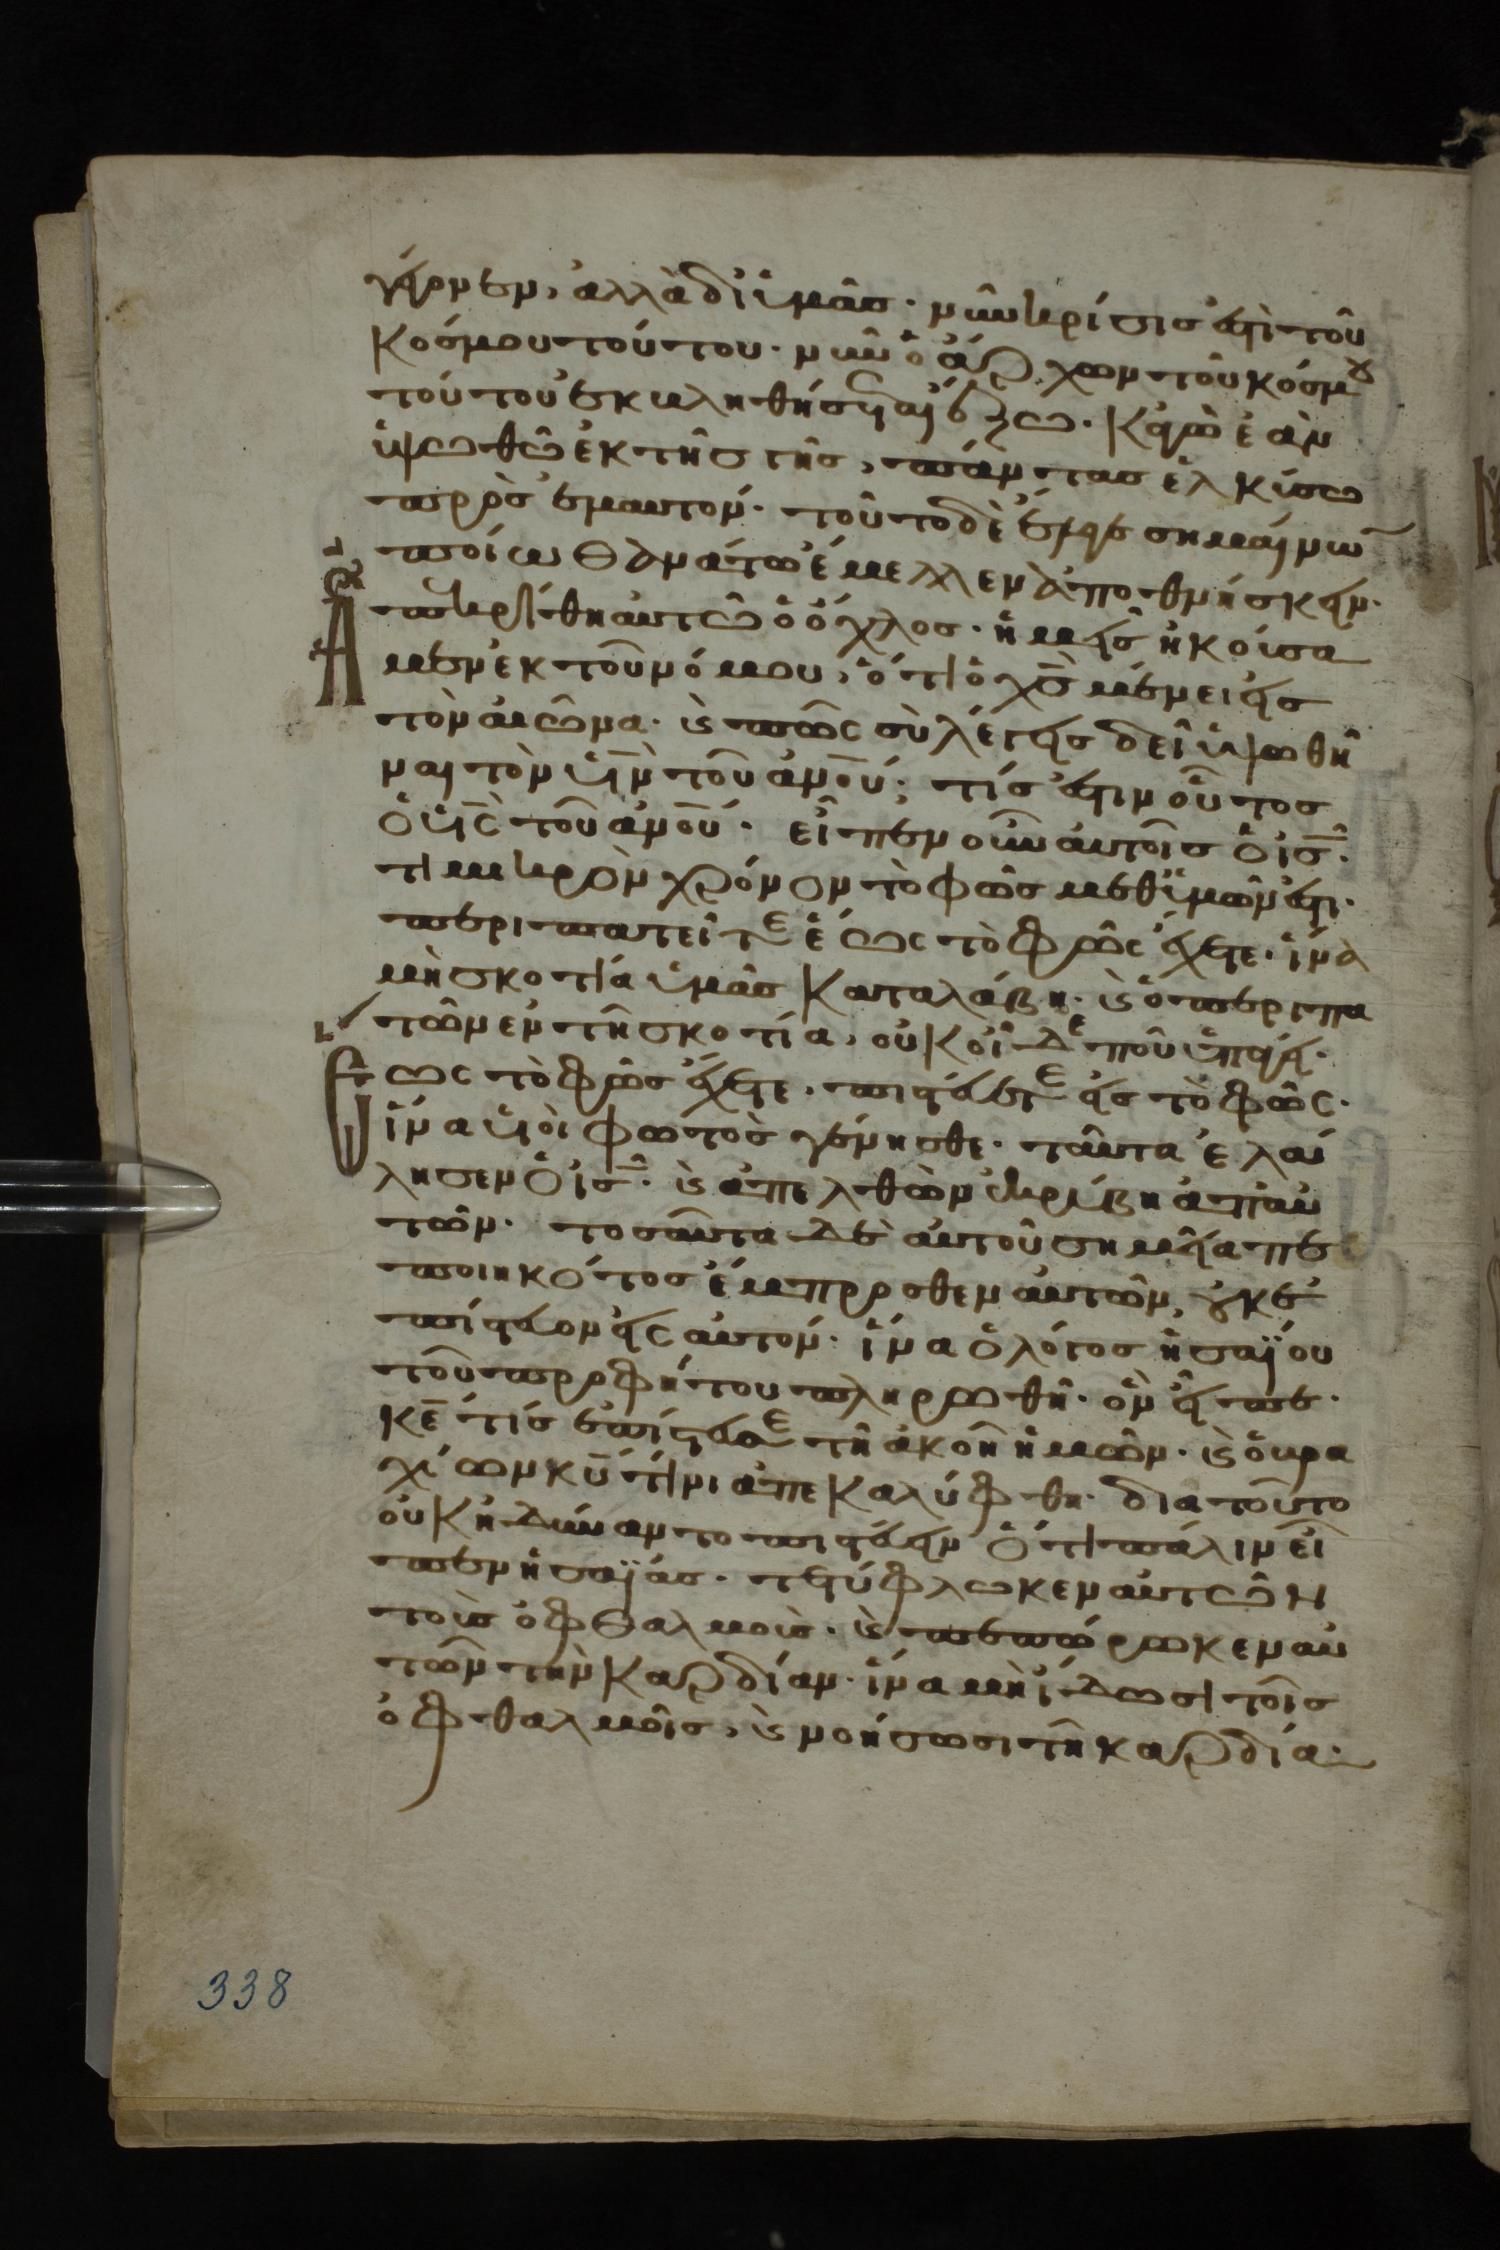 γέγονεν, ἀλλὰ δι' ὑμᾶς· νῦν κρίσις ἐστὶ τοῦ
κόσμου τούτου· νῦν ὁ ἄρχων τοῦ κόσμου
τούτου ἐκβληθήσεται ἔξω· κἀγὼ ἐὰν
ὑψωθῶ ἐκ τῆς γῆς, πάντας ἑλκύσω
πρὸς ἐμαυτόν· τοῦτο δὲ ἔλεγε σημαίνων
ποίω θανάτω ἔμελλεν ἀποθνήσκειν·
Ἀπεκρίθη αὐτῶ ὁ ὄχλος· ἡμεῖς ἠκούσα
μεν ἐκ τοῦ νόμου, ὅτι ὁ χς μένει εἰς
τὸν αἰῶνα· καὶ πῶς σὺ λέγεις δεῖ ὑψωθῆ
ναι τὸν υἱν τοῦ ἀνου; τίς ἐστιν οὗτος
ὁ υἱς τοῦ ἀνου· εἶπεν οὖν αὐτοῖς ὁ ις·
ἔτι μικρὸν χρόνον τὸ φῶς μεθ' ὑμῶν ἐστι·
περιπατεῖτε ἕως τὸ φῶς ἔχετε· ἵνα
μὴ σκοτία ὑμᾶς καταλάβη· καὶ ὁ περιπα
τῶν ἐν τῆ σκοτία, οὐκ οἶδε ποῦ ὑπάγει·
Ἕως τὸ φῶς ἔχετε, πιστεύετε εἰς τὸ φῶς·
ἵνα υἱοὶ φωτὸς γένησθε· ταῦτα ἐλά
λησεν ὁ ις· καὶ ἀπελθὼν ἐκρύβη ἀπ' αὐ
τῶν· τοσαῦτα δὲ αὐτοῦ σημεῖα πε
ποιηκότος ἔμπροσθεν αὐτῶν, οὐκ ἐ
πίστευον εἰς αὐτόν· ἵνα ὁ λόγος ἡσαΐου
τοῦ προφήτου πληρωθῆ· ὃν εἶπε·
κε τίς ἐπίστευσε τῆ ἀκοῆ ἡμῶν· καὶ ὁ βρα
χίων κυ τίνι ἀπεκαλύφθη· διατοῦτο
οὐκ ἠδύναντο πιστεύειν ὅτι πάλιν εἶ
πεν ἡσαΐας· τετύφλωκεν αὐτῶν
τοὺς ὀφθαλμοὺς· καὶ πεπώρωκεν αὐ
τῶν τὴν καρδίαν· ἵνα μὴ ἴδωσι τοῖς
ὀφθαλμοῖς, καὶ νοήσωσι τῆ καρδία·
338